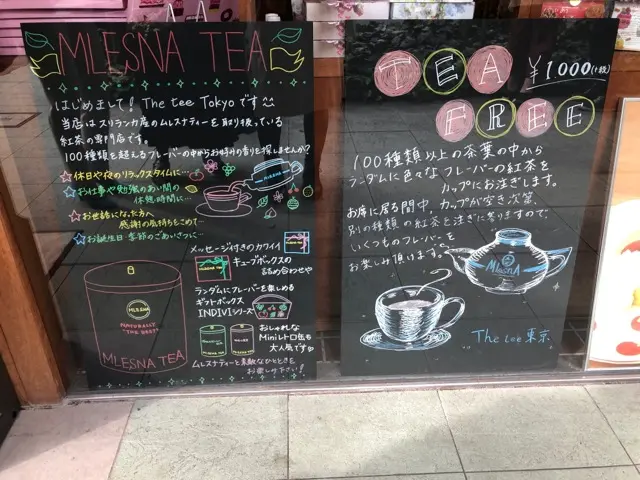 MLESNA TEA
はじめまして! The tee Tokyoです
当店はスリランカ産のムレスナティーを取り扱っている
紅茶の専門店です。
100種類を超えるフレーバーの中からお好みの香りを探しませんか?
☆休日や夜のリラックスタイムに…
☆お仕事や勉強のあい間の
休憩時間に…
☆お世話になった方へ
感謝の気持ちをこめて…
☆お誕生日・季節のごあいさつに…
MLESNA
メッセージ付きのカワイイ
キューブボックスの
詰め合わせや
MLESNA TEA
ランダムにフレーバーを楽しめる
ギフトボックス
INDIVIシリーズ
おしゃれな
Miniレトロ缶も
大人気です
ムレスナティーと素敵なひとときを
お楽しみ下さい!
MLESNA
NATURALLY
"THE BEST"
MLESNA TEA
TEA ¥1000(+税)
FREE
100種類以上の茶葉の中から
ランダムに色々なフレーバーの紅茶を
カップにお注ぎします。
お席に居る間中、カップが空き次第、
別の種類の紅茶を注ぎに参りますので、
いくつものフレーバーを
お楽しみ頂けます。
MlesnA
The tee 東京